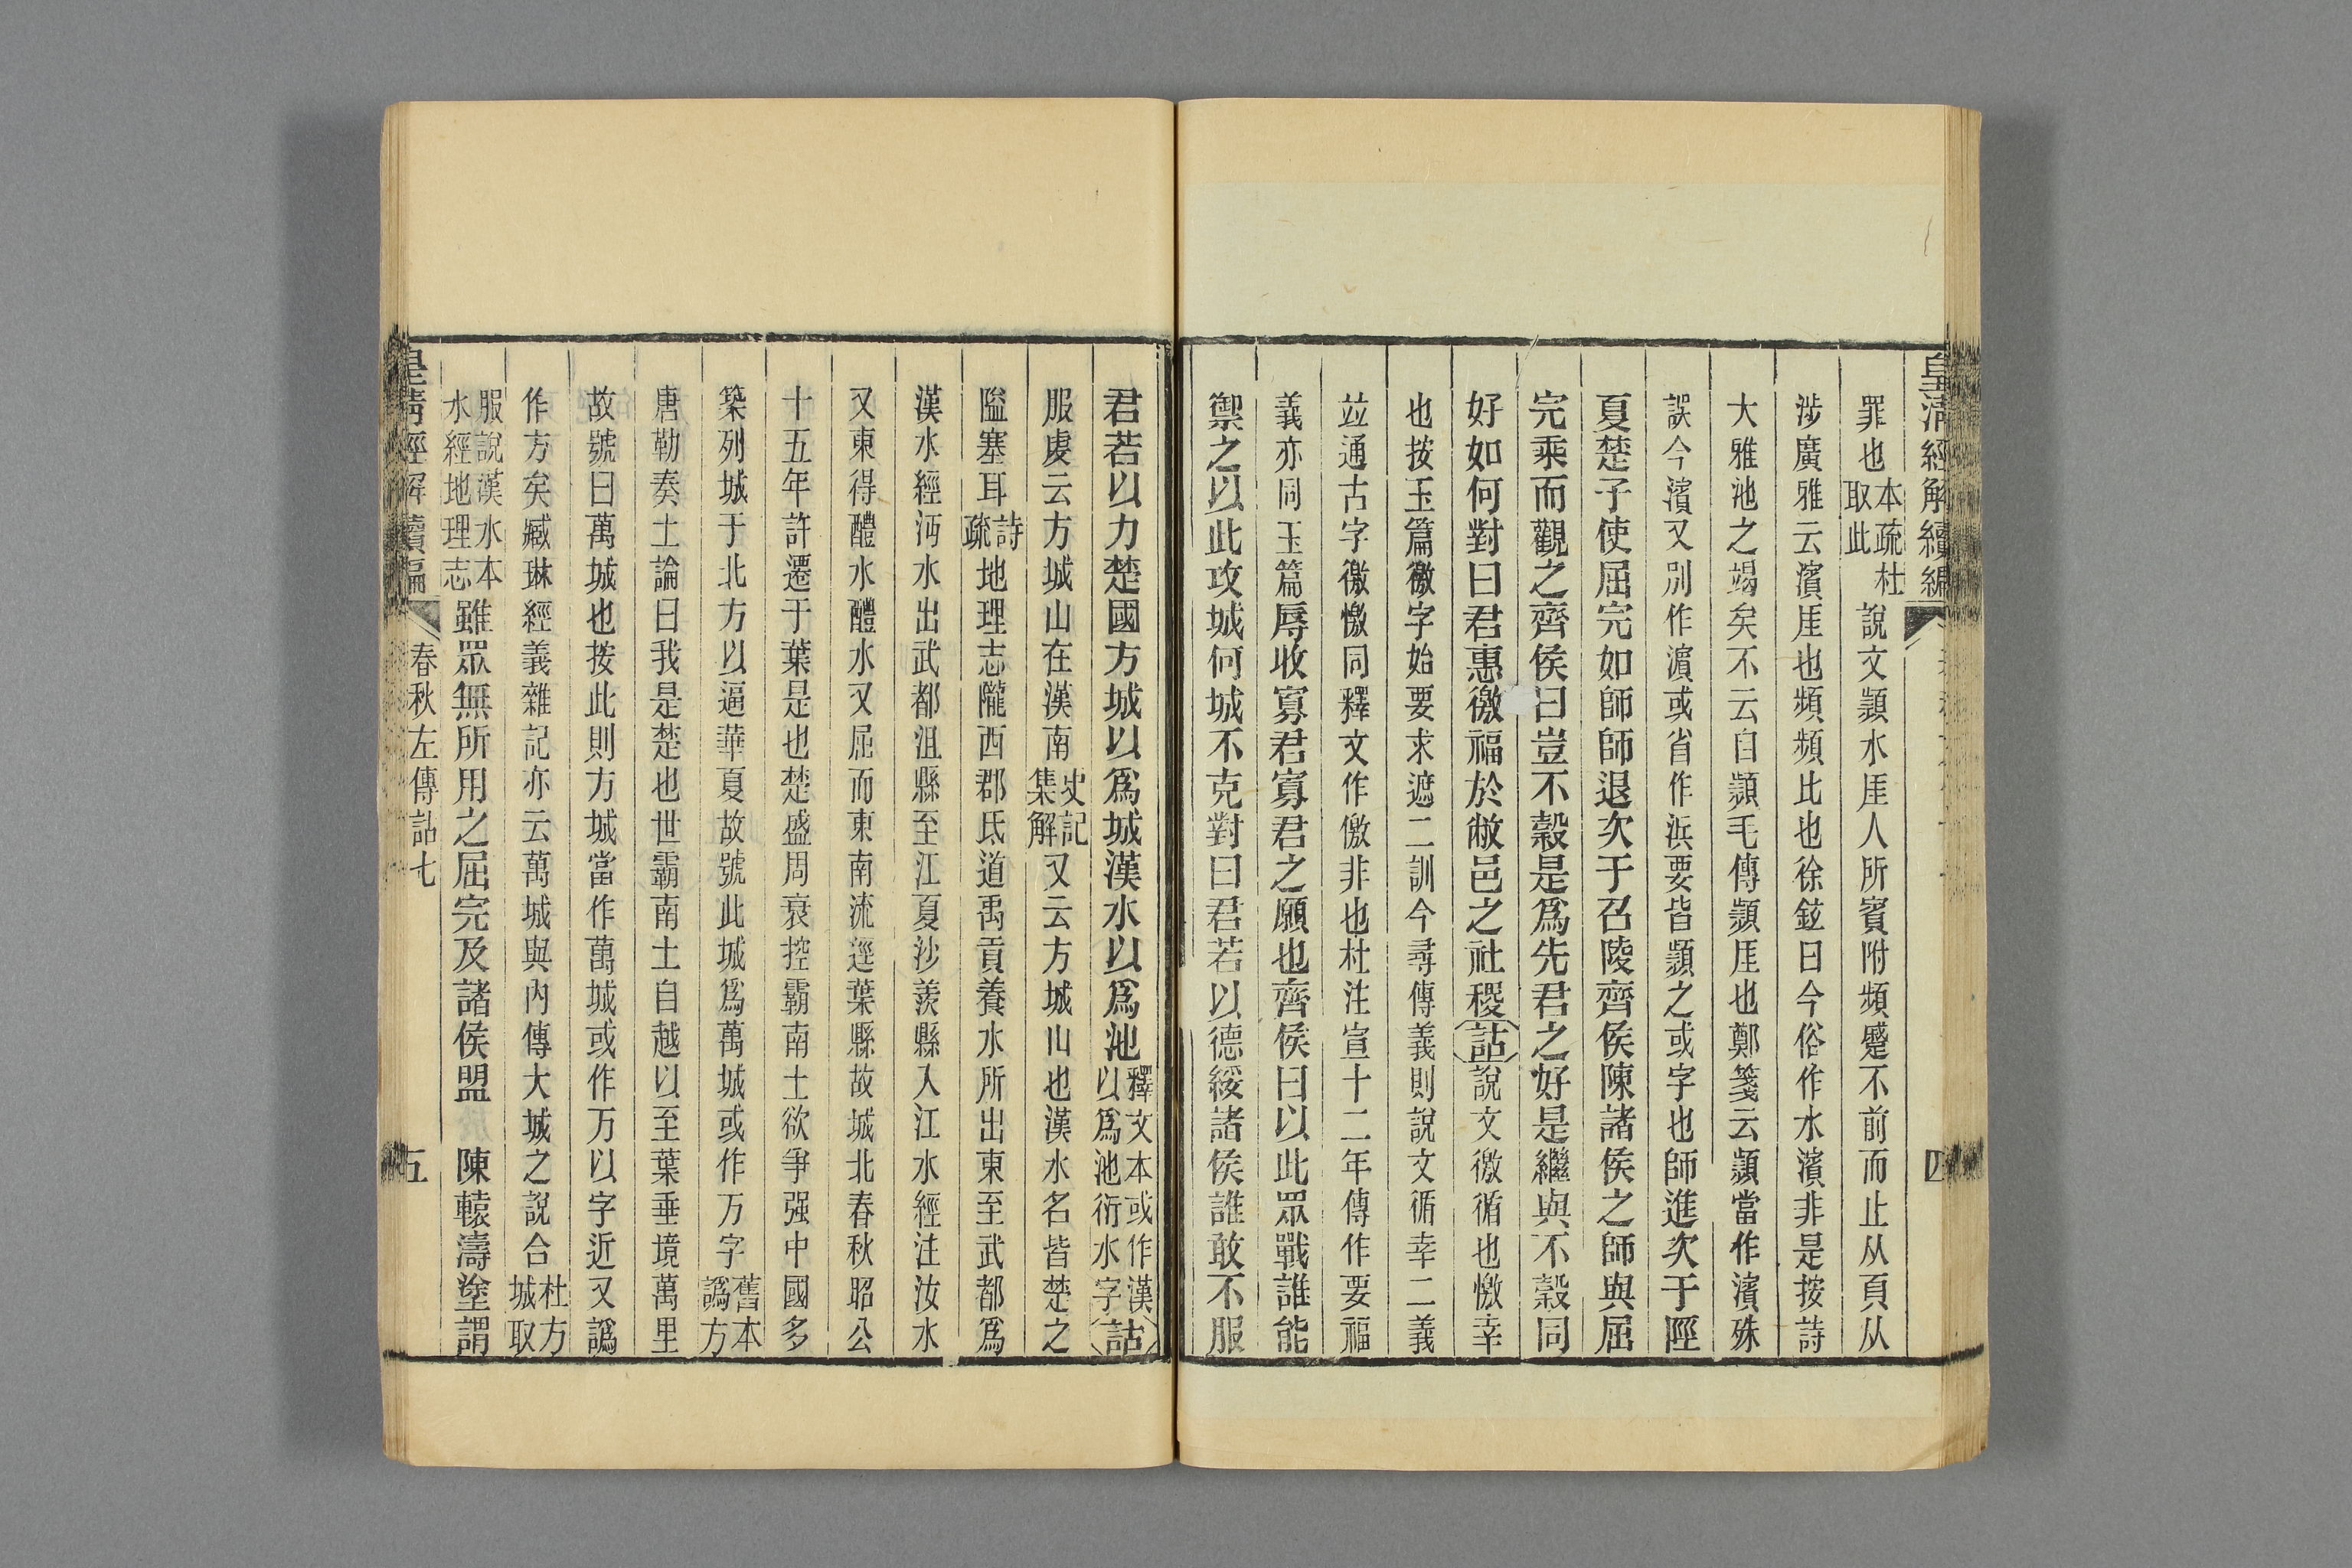 皇清經解續編
四
罪也本疏杜取此說文顥水厓人所賓附頻蹙不前而止从頁从
涉廣雅云濱厓也頻頻比也徐鉉曰今俗作水濱非是按詩
大雅池之竭矣不云自顥毛傳顥厓也鄭箋云顥當作濱殊
誤今濱又別作濵或省作浜要皆顥之或字也師進次于陘
夏楚子使屈完如師師退次于召陵齊侯陳諸侯之師與屈
完乘而觀之齊侯曰豈不穀是爲先君之好是繼與不穀同
好如何對曰君惠徼福於敝邑之社稷詁說文徼循也憿幸
也按玉篇徼字始要求遮二訓今尋傳義則說文循幸二義
竝通古字徼憿同釋文作儌非也杜注宣十二年傳作要福
義亦同玉篇辱收寡君寡君之願也齊侯曰以此眾戰誰能
禦之以此攻城何城不克對曰君若以德綏諸侯誰敢不服
君若以力楚國方城以爲城漢水以爲池釋文本或作漢以爲池衍水字詁
服虔云方城山在漢南史記集解又云方城山也漢水名皆楚之
隘塞耳詩疏地理志隴西郡氐道禹貢養水所出東至武都爲
漢水經沔水出武都沮縣至江夏沙羨縣入江水經注汝水
又東得醴水醴水又屈而東南流逕葉縣故城北春秋昭公
十五年許遷于葉是也楚盛周衰控霸南土欲爭强中國多
築列城于北方以逼華夏故號此城爲萬城或作万字舊本譌方
唐勒奏土論曰我是楚也世霸南土自越以至葉垂境萬里
故號曰萬城也按此則方城當作萬城或作万以字近又譌
作方矣臧琳經義雜記亦云萬城與內傳大城之說合杜方城取
服說漢水本水經地理志雖眾無所用之屈完及諸侯盟　陳轅濤塗謂
皇清經解續編
春秋左傳詁七
五